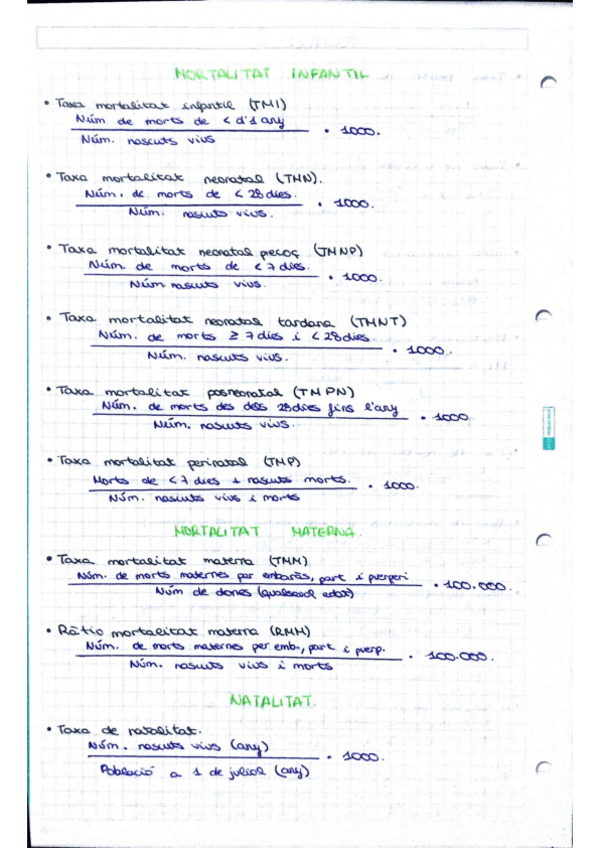 MORTALITAT INFANTIL
• Taxa mortalitat infantil (TMI)
Núm. de morts de < d'1 any
• 1000.
Núm. nascuts vius
• Taxa mortalitat neonatal (TMN).
Núm. de morts de < 28 dies.
• 1000.
Núm. nascuts vius.
• Taxa mortalitat neonatal precoç (TMNP)
Núm. de morts de < 7 dies.
• 1000.
Núm nascuts vius.
• Taxa mortalitat neonatal tardana (TMNT)
Núm. de morts ≥ 7 dies i < 28 dies
• 1000.
Núm. nascuts vius.
• Taxa mortalitat posneonatal (TMPN)
Núm. de morts des dels 28 dies fins l'any
• 1000
Núm. nascuts vius.
• Taxa mortalitat perinatal (TMP)
Morts de < 7 dies + nascuts morts.
• 1000.
Núm. nascuts vius i morts
MORTALITAT MATERNA.
• Taxa mortalitat materna (TMM)
Núm. de morts maternes per embaràs, part i puerperi
• 100.000.
Núm de dones (qualsevol edat)
• Ràtio mortalitat materna (RMM)
Núm. de morts maternes per emb., part i puerp.
• 100.000.
Núm. nascuts vius i morts
NATALITAT.
• Taxa de natalitat.
Núm. nascuts vius (any)
• 1000.
Població a 1 de juliol (any)